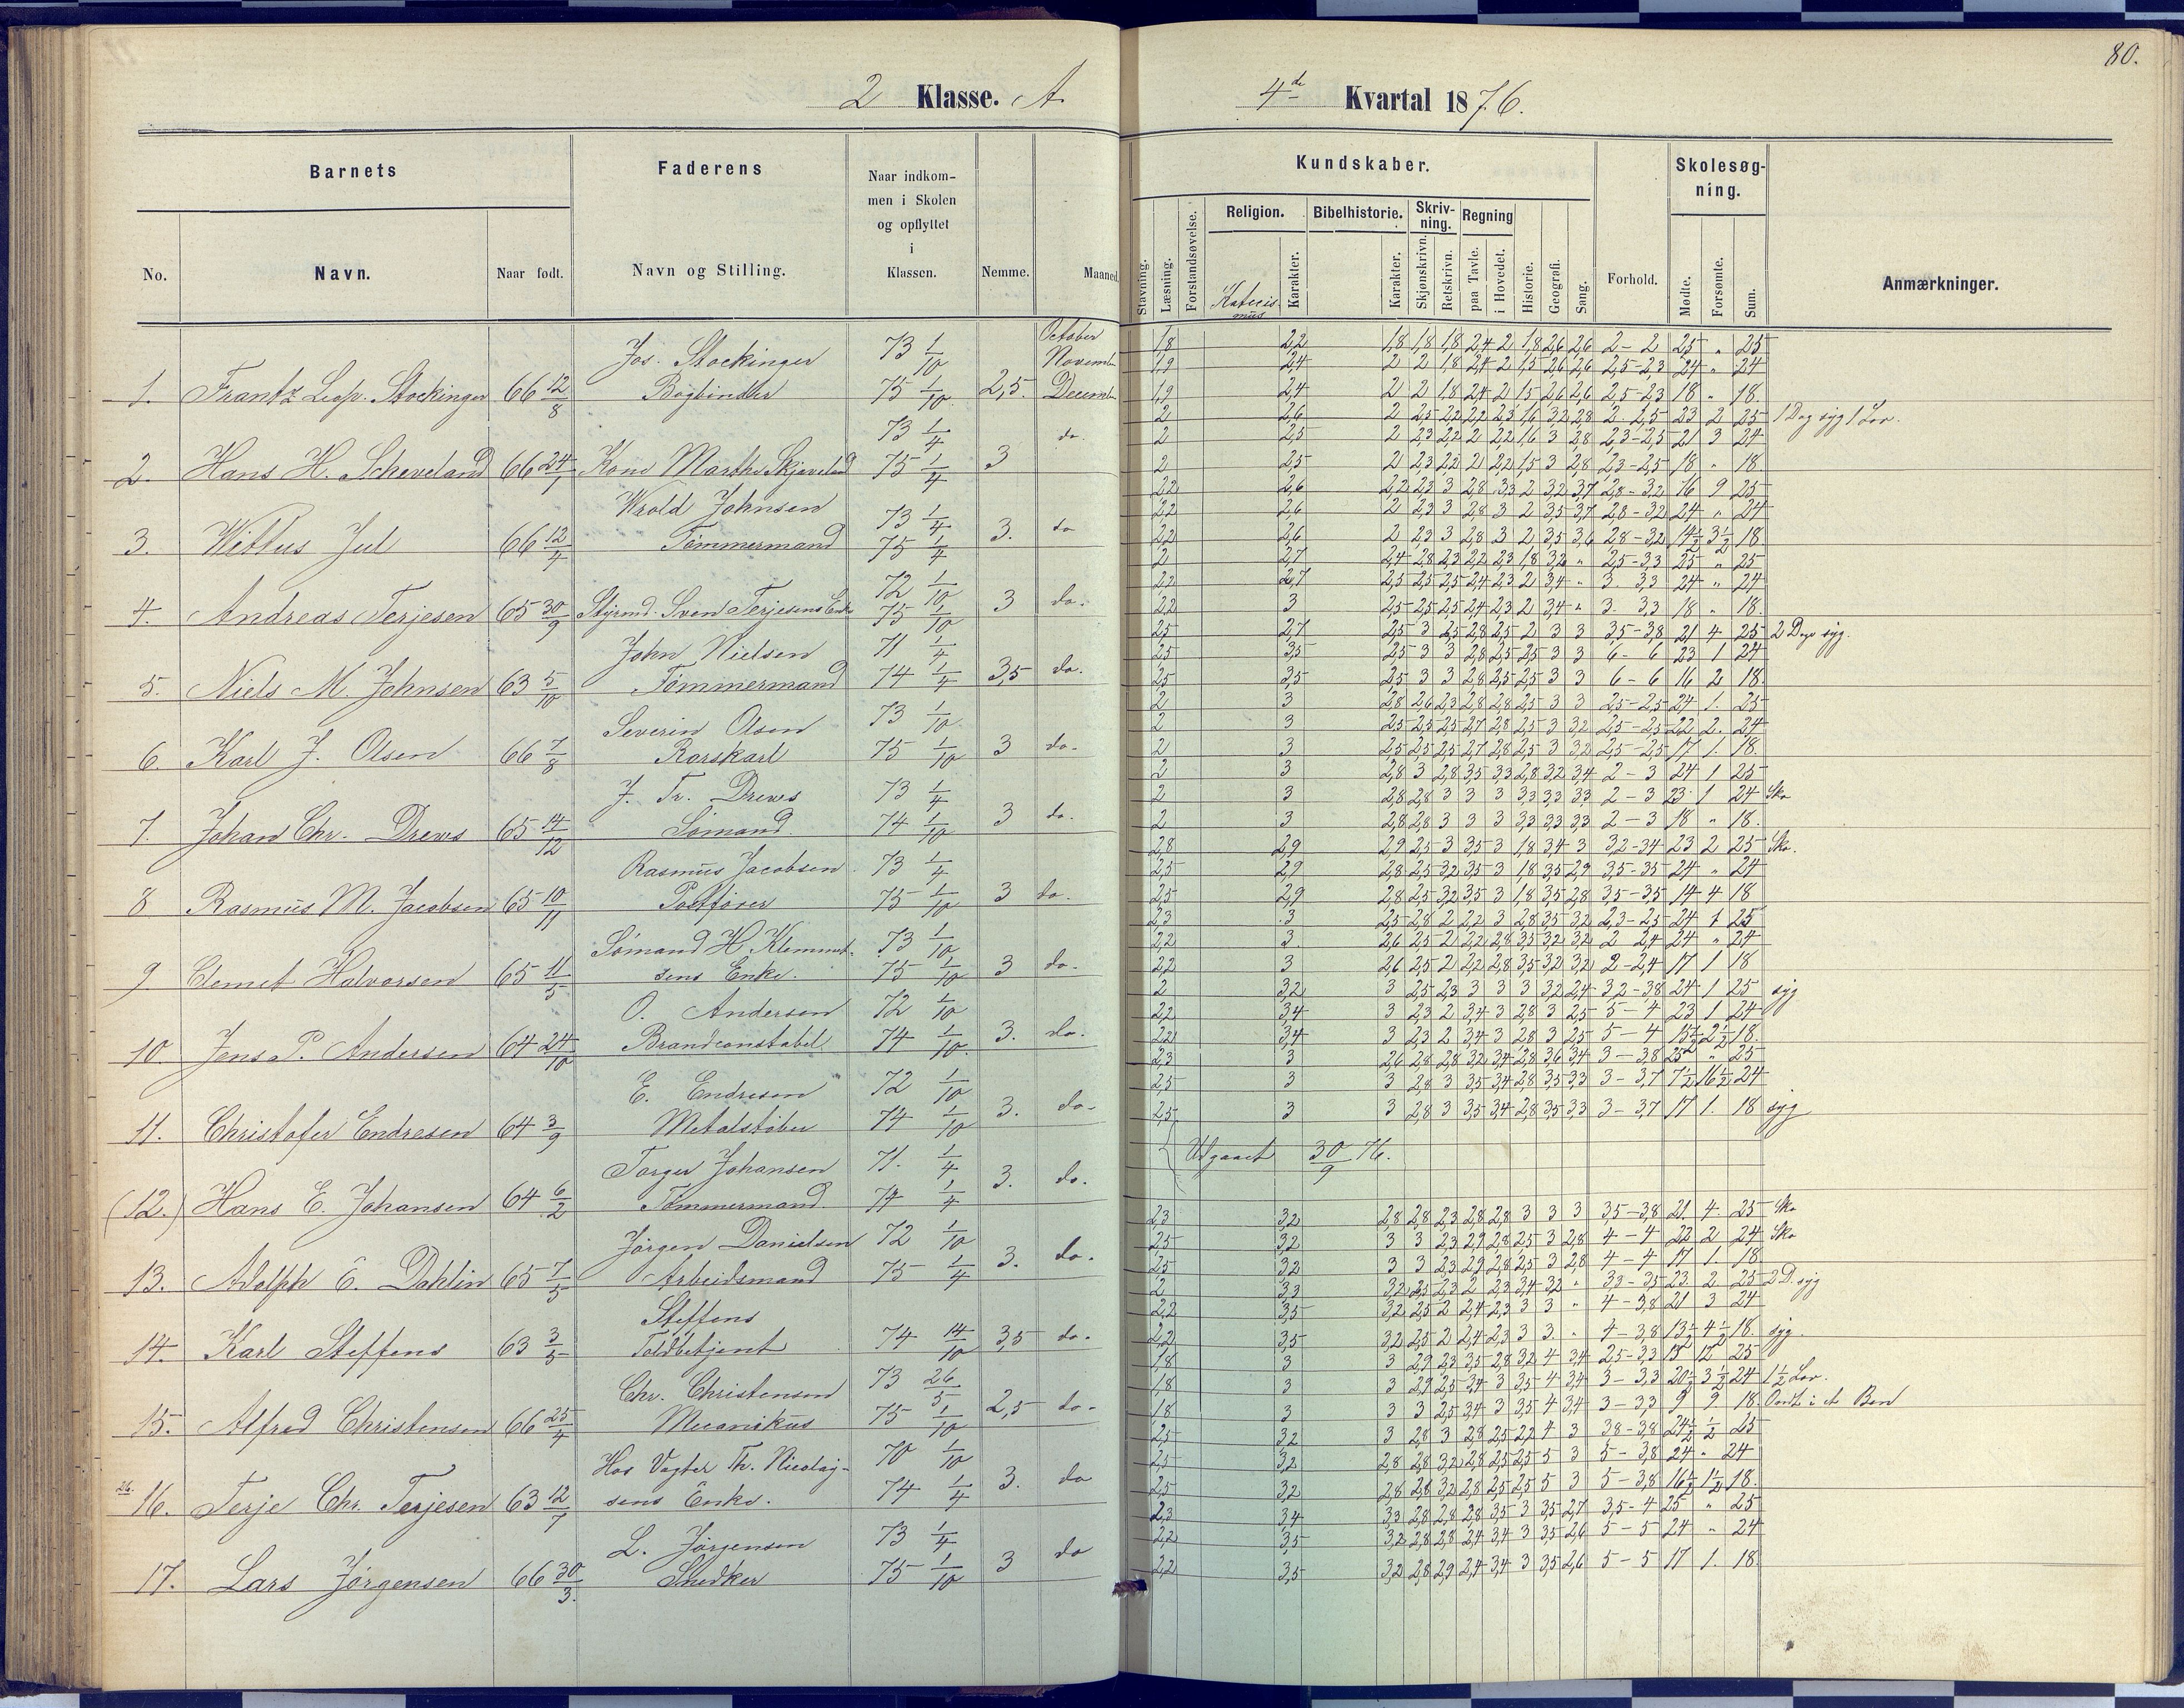 80.
2 Klasse. A
4de Kvartal 1876.
Barnets
Faderens
Naar indkommen i Skolen og opflyttet i Klassen.
Nemme.
Maaned.
No.
Navn.
Naar født.
Navn og Stilling.
Kundskaber.
Skolesøgning.
Stavning.
Læsning.
Forstandsøvelse.
Religion.
Katecismus
Karakter.
Bibelhistorie.
Karakter.
Skrivning.
Skjønskrivn.
Retskrivn.
Regning
paa Tavle.
i Hovedet.
Historie.
Geografi.
Sang.
Forhold.
Mødte.
Forsømte.
Sum.
Anmærkninger.
Jos. Stockinger 73 1/10 October
Novemb
1. Frantz Leop. Stockinger 66 12/8 Bogbinder 75 1/10 2,5. Decemb
1,8 2,2 1,8 1,8 1,8 2,4 2 1,8 2,6 2,6 2-2 25 " 25
1,9 2,4 2 2 1,8 2,4 2 1,5 2,6 2,6 2,5-2,3 24 " 24
1,9 2,4 2 2 1,8 2,4 2 1,5 2,6 2,6 2,5-2,3 18 " 18.
73 1/4 do.
2. Hans H. Scheveland 66 24/1 Kone Marthe Skjæveland 75 1/4 3
2 2,6 2 2,5 2,2 2,2 2,3 1,6 3,2 2,8 2-2,5 23 2 25 1 Dag syg 1 Lov.
2 2,5 2 2,3 2,2 2 2,2 1,6 3 2,8 2,3-2,5 21 3 24
2 2,5 2 2,3 2,2 2 2,2 1,5 3 2,8 2,3-2,5 18 " 18.
Wrold Johnsen 73 1/4
3. Wittus Jul 66 12/4 Tømmermand 75 1/4 3. do
2,2 2,6 2,2 2,3 3 2,8 3,3 2 3,2 3,7 2,8-3,2 16 9 25
2,2 2,6 2 2,3 3 2,8 3 2 3,5 3,7 2,8-3,2 24 " 24
2,2 2,6 2 2,3 3 2,8 3 2 3,5 3,6 2,8-3,2 14 1/2 3 1/2 18
72 1/10
4. Andreas Terjesen 65 30/9 Styrmd. Sven Terjesens Enke 75 1/10 3 do.
2 2,7 2,4 2,8 2,3 2,2 2,3 1,8 3,2 " 2,5-3,3 25 " 25
2,2 2,7 2,5 2,5 2,5 2,4 2,3 2 3,4 " 3. 3,3 24 " 24
2,2 3 2,5 2,5 2,5 2,4 2,3 2 3,4 " 3. 3,3 18 " 18.
John Nielsen 71 1/4
5. Niels M. Johnsen 63 5/10 Tømmermand 74 1/4 3,5 do.
2,5 2,7 2,5 3 2,5 2,8 2,5 2 3 3 3,5-3,8 21 4 25 2 Dage syg.
2,5 3,5 2,5 3 3 2,8 2,5 2,5 3 3 6-6 23 1 24
2,5 3,5 2,5 3 3 2,8 2,5 2,5 3 3 6-6 16 2 18.
Severin Olsen 73 1/10
6. Karl J. Olsen 66 7/8 Rorskarl 75 1/10 3 do.
2 3 2,8 2,6 2,3 2,8 2,8 2,5 3 3 2,5-2,5 24 1. 25
2 3 2,5 2,5 2,5 2,7 2,8 2,5 3 3,2 2,5-2,5 22 2. 24
2 3 2,5 2,5 2,5 2,7 2,8 2,5 3 3,2 2,5-2,5 17 1. 18.
J. Fr. Drews 73 1/4
7. Johan Chr. Drews 65 14/12 Sømand. 74 1/10 3 do.
2 3 2,8 3 2,8 3,5 3,3 2,8 3,2 3,4 2-3 24 1 25
2 3 2,8 2,8 3 3 3 3,3 3,3 3,3 2-3 23 1 24 Sko
2 3 2,8 2,8 3 3 3 3,3 3,3 3,3 2-3 18 " 18.
Rasmus Jacobsen 73 1/4
8 Rasmus M. Jacobsen 65 10/11 Postfører 75 1/10 3 do.
2,8 2,9 2,9 2,5 3 3,5 3 1,8 3,4 3 3,2-3,4 23 2 25 Sko.
2,5 2,9 2,8 2,5 3,2 3,5 3 1,8 3,5 2,9 3,5-3,5 24 " 24
2,5 2,9 2,8 2,5 3,2 3,5 3 1,8 3,5 2,8 3,5-3,5 14 4 18
Sømand H. Klemmet- 73 1/10
9. Clemet Halvorsen 65 11/5 sens Enke. 75 1/10 3 do.
2,3 3 2,5 2,8 2 2,2 3 2,8 3,5 3,2 2,3-2,5 24 1 25
2,2 3. 2,6 2,5 2 2,2 2,8 3,5 3,2 3,2 2-2,4 24 " 24
2,2 3 2,6 2,5 2 2,2 2,8 3,5 3,2 3,2 2-2,4 17 1 18
O. Andersen 72 1/10
10. Jens P. Andersen 64 24/10 Brandconstabel 74 1/10. 3. do.
2 3,2 3 2,5 2,3 3 3 3 3,2 2,4 3,2-3,8 24 1 25 syg
2,2 3,4 3 2,3 2 3,4 3 2,8 3 2,5 5-4 23 1 24
2,2 3,4 3 2,3 2 3,4 3 2,8 3 2,5 5-4 15 1/2 2 1/2 18.
E. Endresen 72 1/10
11. Christofer Endresen 64 3/9 Metalstøber 74 1/10 3. do.
2,3 3 2,6 2,8 2,8 3,2 3,4 2,8 3,6 3,4 3-3,8 25 " 25
2,5 3 3 2,8 3 3,5 3,4 2,8 3,5 3,3 3-3,7 7 1/2 16 1/2 24
2,5 3 3 2,8 3 3,5 3,4 2,8 3,5 3,3 3-3,7 17 1. 18 syg
Torger Johansen 71. 1/4
(12.) Hans E. Johansen 64 6/2 Tømmermand. 74 1/4 3. do.
Udgaaet 30/9 76.
Jørgen Danielsen 72 1/10
13. Adolph E. Dahlin 65 7/5 Arbeidsmand 75 1/4 3. do.
2,3 3,2 2,8 2,8 2,3 2,8 2,8 3 3 3 3,5-3,8 21. 4. 25 Sko
2,5 3,2 3 3 2,3 2,9 2,8 2,5 3 2,8 4-4 22 2 24 Sko
2,5 3,2 3 3 2,3 2,9 2,8 2,5 3 2,8 4-4 17 1. 18
Steffens
14. Karl Steffens 63 3/5 Toldbetjent 74 14/10 3,5 do.
2 3,3 3,2 2,5 2,3 2 2,3 3,4 3,2 " 3,3-3,5 23 2 25 2 D. syg
2,2 3,5 3,2 2,5 2 2,4 2,3 3 3 " 4-3,8 21 3 24
2,2 3,5 3,2 2,5 2 2,4 2,3 3 3. " 4-3,8 13 1/2 4 1/2 18. syg.
Chr. Christensen 73 26/5
15. Alfred Christensen 66 25/4 Mecanikus 75 1/10 2,5 do.
1,8 3 3 2,9 2,3 3,5 2,8 3,2 4 3,4 2,5-3,3 25
1,8 3 3 2,9 2,5 3,4 3 3,5 4 3,4 3-3,3 20 1/2 3 1/2 24 1 1/2 Lov.
1,8 3 3 3 2,5 3,4 3 3,5 4 3,4 3-3,3 9 9 18. Ondt i et Ben
Hos Vagter Th. Nicolay- 70 1/10
26. 16. Terje Chr. Terjesen 63 12/7 sens Enke. 74 1/4 3. do
2,5 3,2 3 2,8 3 2,8 2,5 2,2 4 3 3,8-3,8 24 1/2 1/2 25
2,5 3,2 2,8 2,8 3,2 2,8 2,5 2,5 5 3 5-3,8 24 " 24
2,5 3,2 2,8 2,8 3,2 2,8 2,5 2,5 5 3 5-3,8 16 1/2 1 1/2 18.
L. Jørgensen 73 1/4
17. Lars Jørgensen 66 30/3. Snedker 75 1/10 3 do
2,3 3,4 3,3 2,8 2,8 2,8 3,5 3 3,5 2,7 3,5-4 25 " 25
2,2 3,5 3,2 2,8 2,8 2,4 3,4 3 3,5 2,6 5-5 24 " 24
2,2 3,5 3,2 2,8 2,9 2,4 3,4 3 3,5 2,6 5-5 17 1. 18.